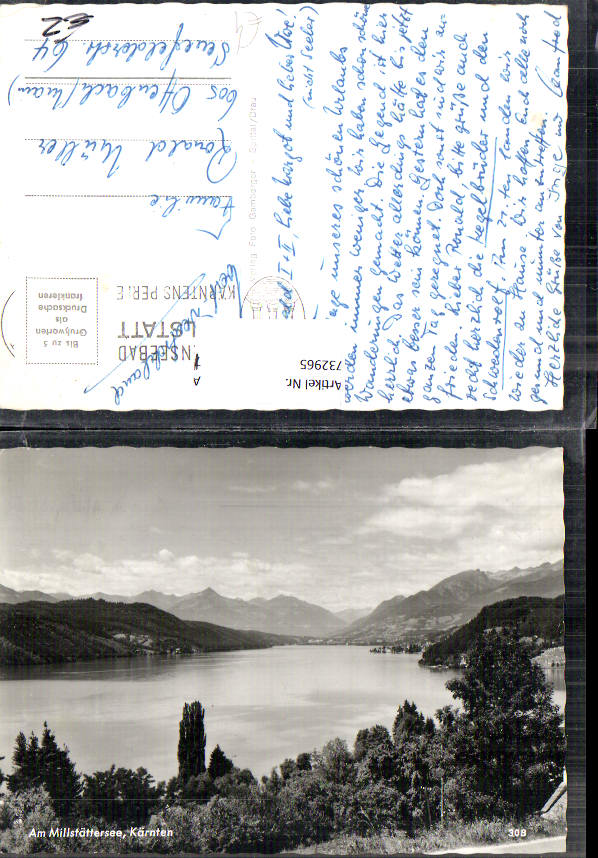 Herzliche Grüße von Inge und Manfred
gesund und munter anzutreffen.
wieder zu Hause. Wir hoffen Euch alle noch
Schwedenwolf. Am 21. ten landen wir
recht herzlich die Kegelbrüder und den
frieden. Lieber Ronald, bitte grüße auch
ganzen Tag geregnet. Doch sonst sind wir zu-
etwas besser sein können. Gestern hat es den
herrlich. Das Wetter allerdings hätte bis jetzt
Wanderungen gemacht. Die Gegend ist hier
werden immer weniger. Wir haben schon schöne
unseres schönen Urlaubs
I + II, liebe Margot und lieber Uwe!
(nicht Seeler)
Familie
Ronald Müller
605 Offenbach/Main
Senefelderstr. 64
Bis zu 5
Grußworten
als
Drucksache
frankieren
INSEEBAD
LSTATT
KÄRNTENS PERLE
Artikel Nr.
732965
A
1
Am Millstättersee, Kärnten
308